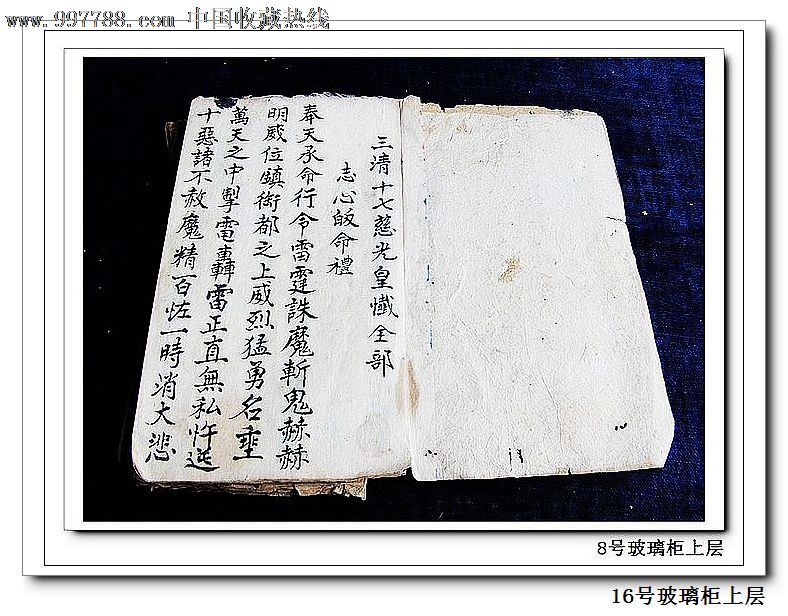 www.997788.com 中国收藏热线
三清十七慈光皇懺全部
志心皈命禮
奉天承命行令雷霆誅魔斬鬼赫赫
明威位鎮衙都之上威烈猛勇名垂
萬天之中掣電轟雷正直無私忤逆
十惡諸不赦魔精百怪一時消大悲
8号玻璃柜上层
16号玻璃柜上层